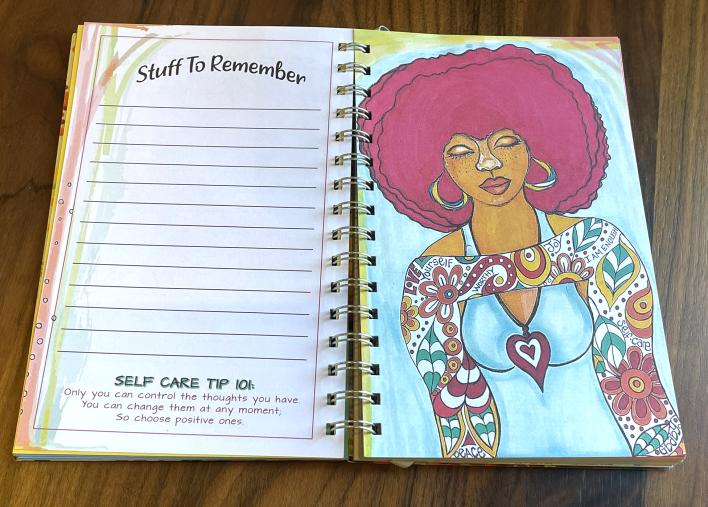 Stuff To Remember
SELF CARE TIP 101:
Only you can control the thoughts you have.
You can change them at any moment;
So choose positive ones.
LOVE
YOURSELF
WORTHY
JOY
I AM ENOUGH
SELF-care
PEACE